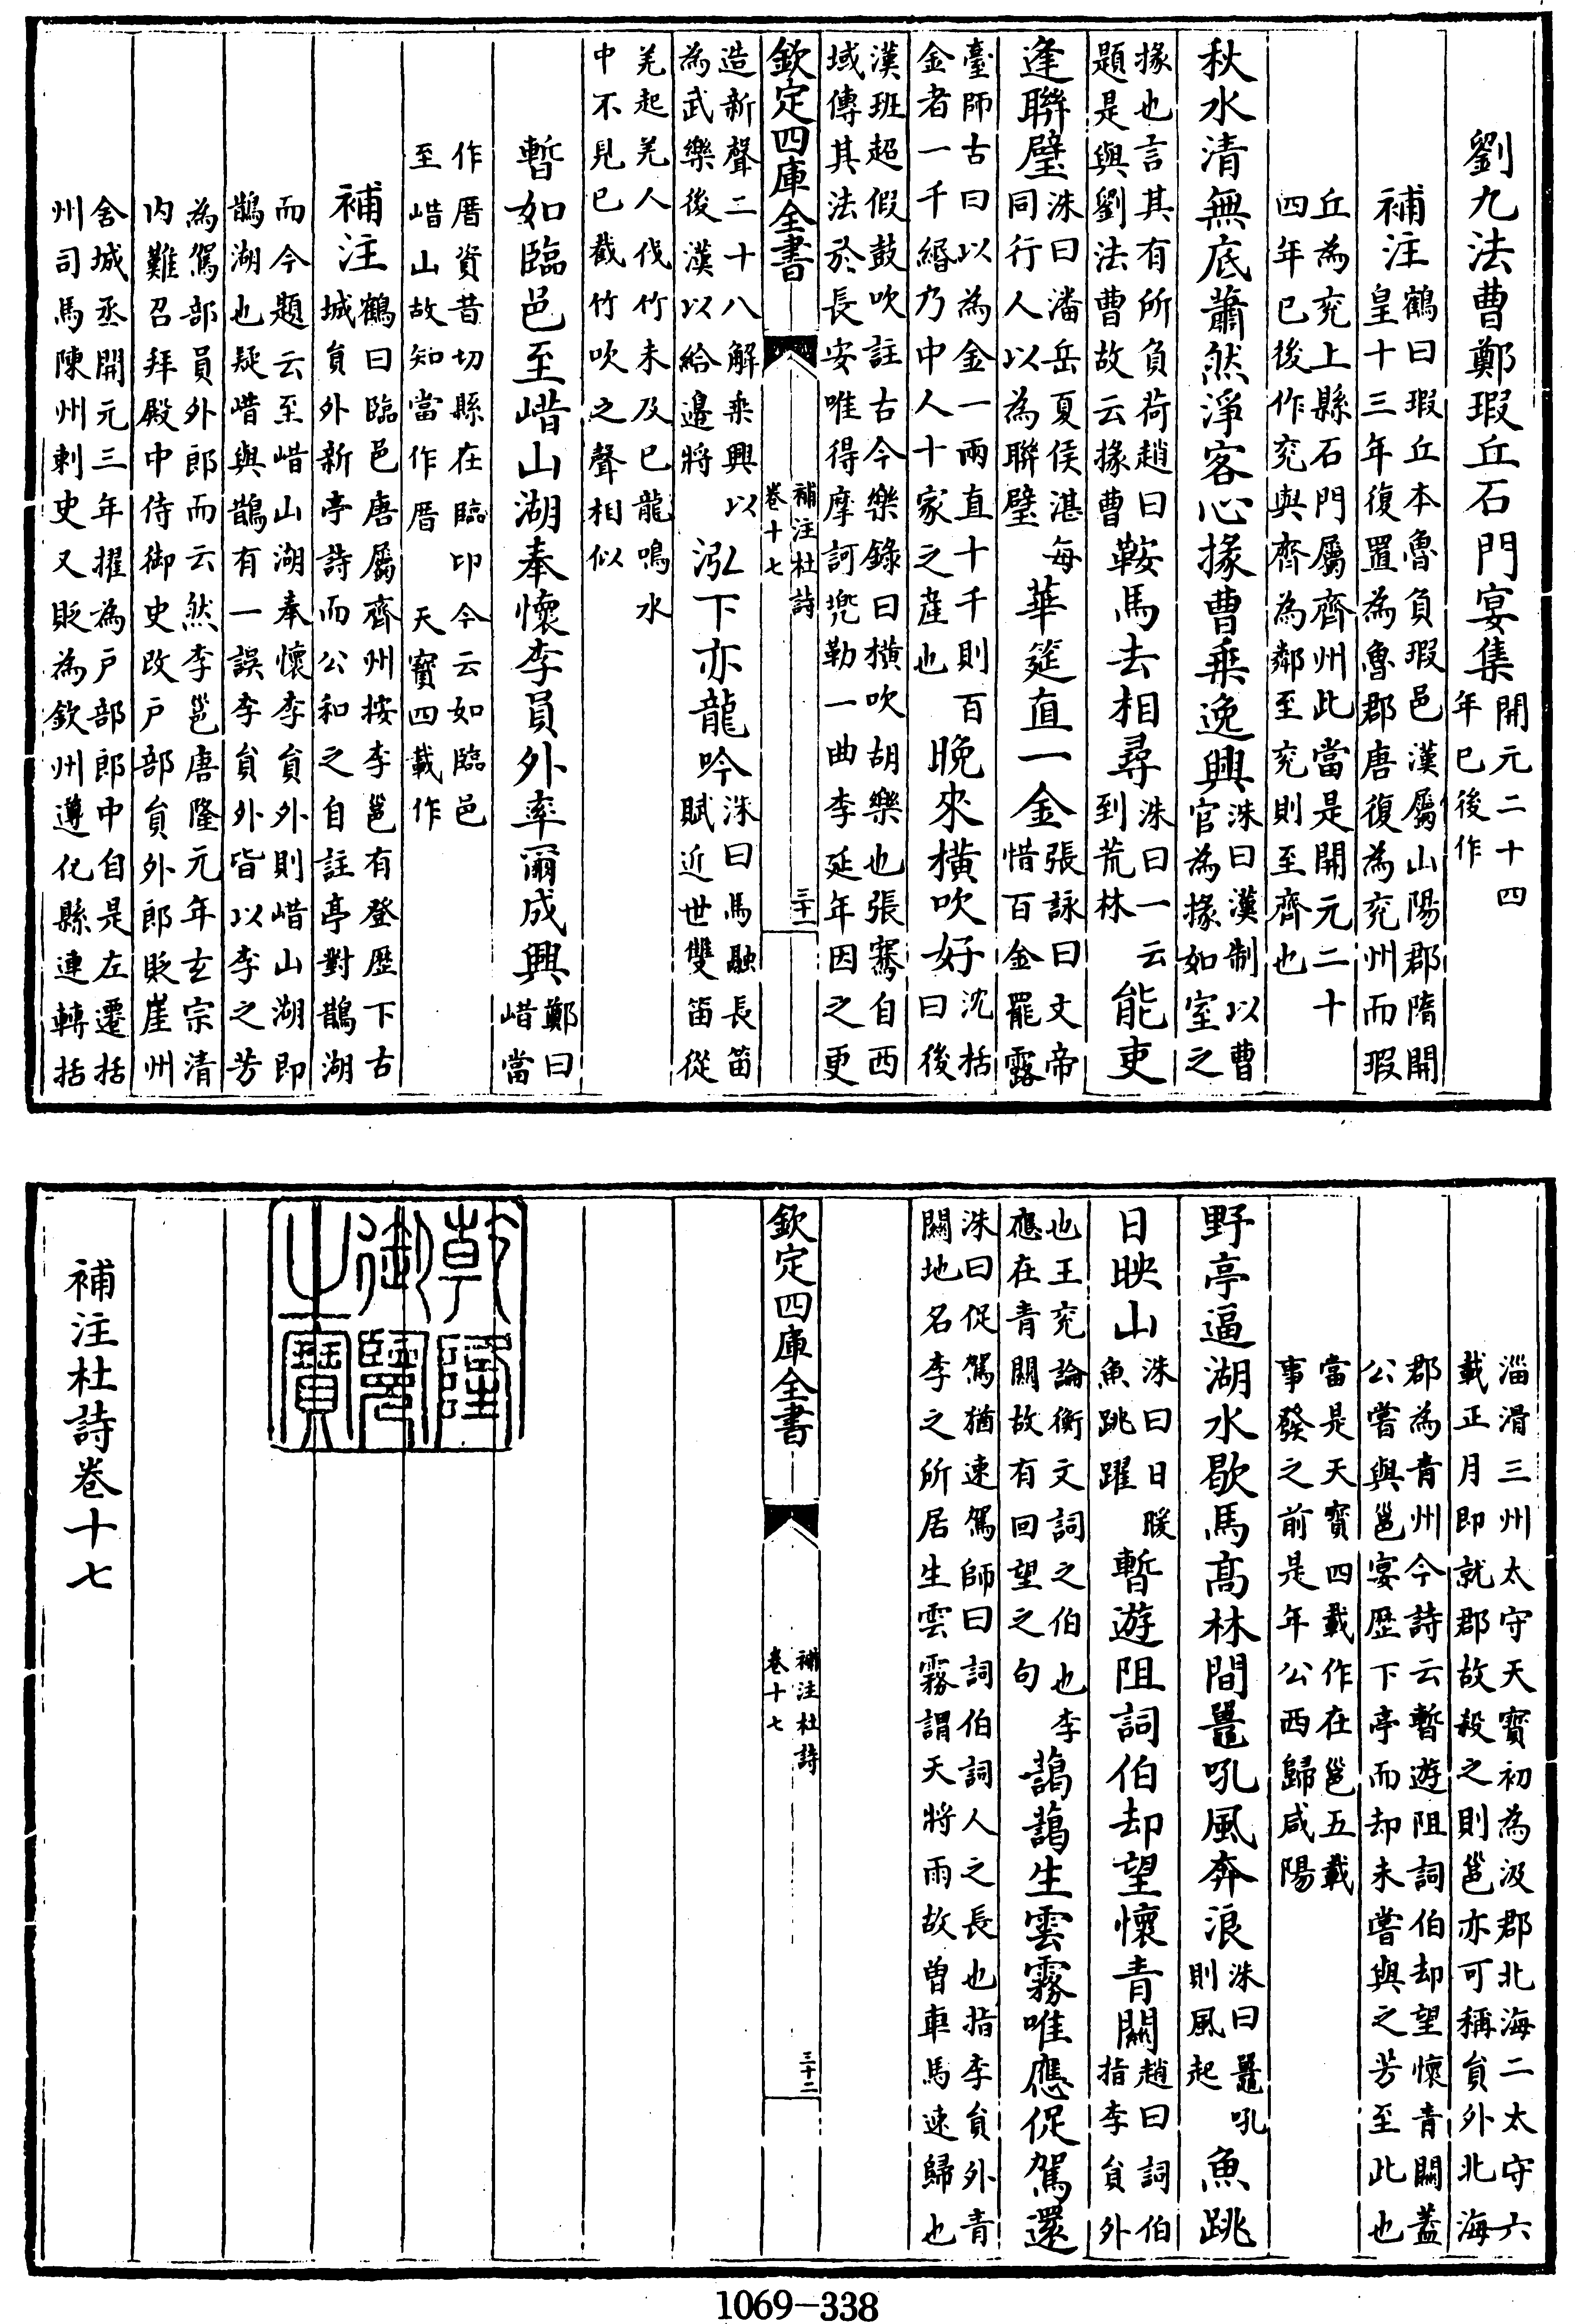 劉九法曹鄭瑕丘石門宴集開元二十四年已後作
補注鶴曰瑕丘本魯負瑕邑漢屬山陽郡隋開皇十三年復置為魯郡唐復為兖州而瑕
丘為兖上縣石門屬齊州此當是開元二十四年已後作兖與齊為鄰至兖則至齊也
秋水清無底蕭然淨客心掾曹乗逸興洙曰漢制以曹官為掾如室之
掾也言其有所負荷趙曰題是與劉法曹故云掾曹鞍馬去相尋洙曰一云到荒林能吏
逢聯璧洙曰潘岳夏侯湛每同行人以為聯璧華筵直一金張詠曰文帝惜百金罷露
臺師古曰以為金一兩直十千則百金者一千緡乃中人十家之産也晚來横吹好沈括曰後
漢班超假鼓吹註古今樂錄曰横吹胡樂也張騫自西域傳其法於長安唯得摩訶兜勒一曲李延年因之更
欽定四庫全書 補注杜詩卷十七 三十一
造新聲二十八解乗輿以為武樂後漢以給邊將泓下亦龍吟洙曰馬融長笛賦近世雙笛從
羌起羌人伐竹未及已龍鳴水中不見已截竹吹之聲相似
暫如臨邑至㟙山湖奉懷李員外率爾成興鄭曰㟙當
作厝資昔切縣在臨卭今云如臨邑至㟙山故知當作厝 天寶四載作
補注鶴曰臨邑唐屬齊州按李邕有登歴下古城貟外新亭詩而公和之自註亭對鵲湖
而今題云至㟙山湖奉懷李貟外則㟙山湖即鵲湖也疑㟙與鵲有一誤李貟外皆以李之芳
為駕部員外郎而云然李邕唐隆元年玄宗清内難召拜殿中侍御史改戸部貟外郎貶崖州
舍城丞開元三年擢為戸部郎中自是左遷括州司馬陳州刺史又貶為欽州遵化縣連轉括
淄滑三州太守天寶初為汲郡北海二太守六載正月即就郡故殺之則邕亦可稱貟外北海
郡為青州今詩云暫遊阻詞伯却望懷青關葢公嘗與邕宴歴下亭而却未嘗與之芳至此也
當是天寶四載作在邕五載事發之前是年公西歸咸陽
野亭逼湖水歇馬髙林間鼉吼風奔浪洙曰鼉吼則風起魚跳
日映山洙曰日暖魚跳躍暫遊阻詞伯却望懷青關趙曰詞伯指李貟外
也王充論衡文詞之伯也李應在青關故有回望之句藹藹生雲霧唯應促駕還
洙曰促駕猶速駕師曰詞伯詞人之長也指李貟外青關地名李之所居生雲霧謂天將雨故曽車馬速歸也
欽定四庫全書 補注杜詩卷十七 三十二
乾隆御覽之寶
補注杜詩卷十七
1069-338